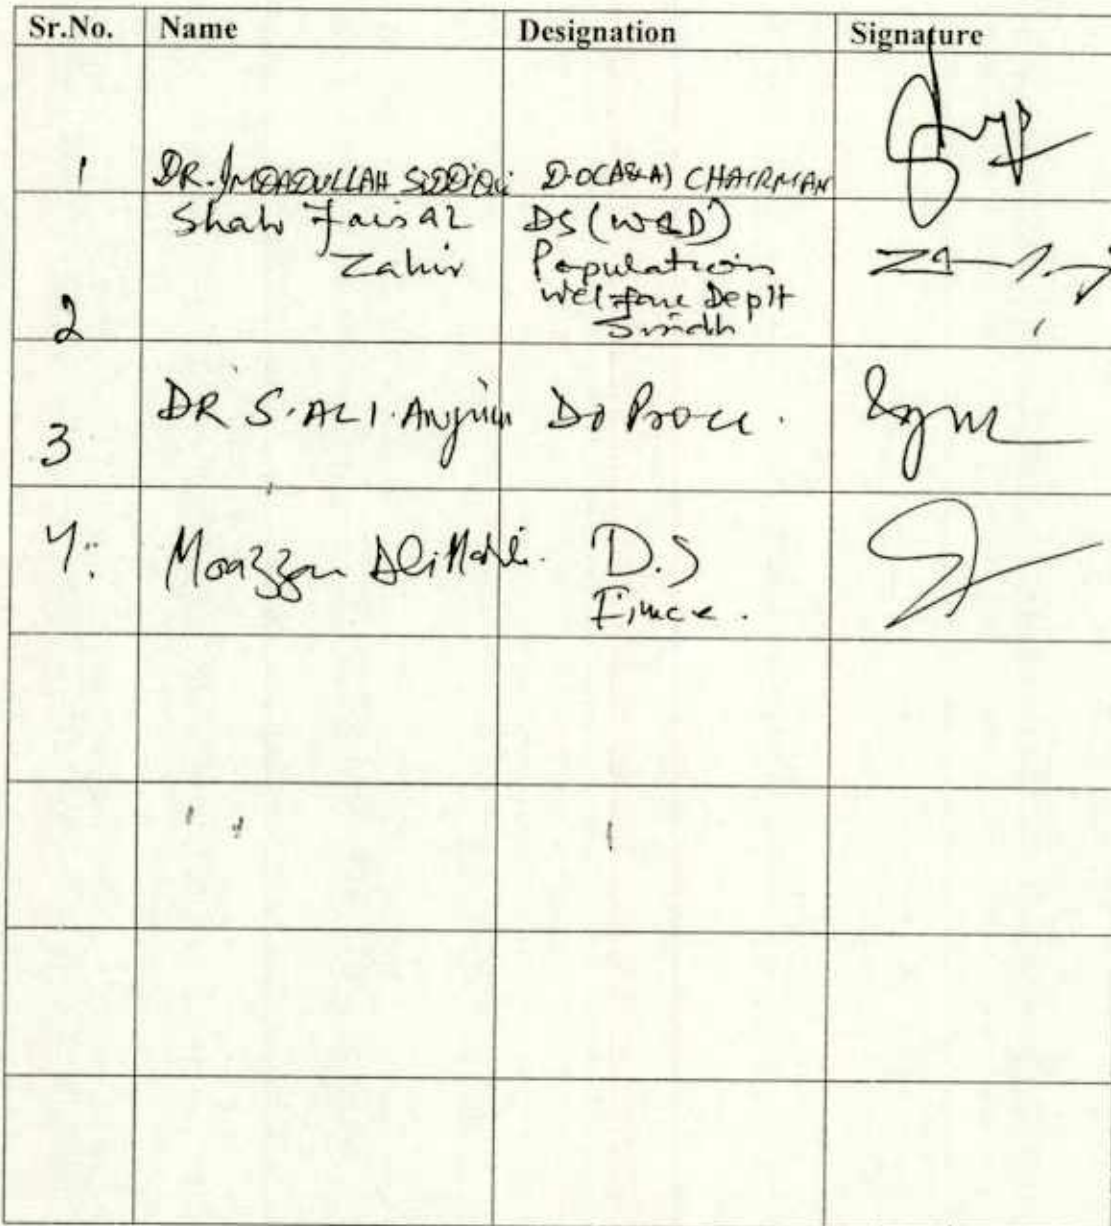 Sr.No. Name Designation Signature
1 DR. IMDADULLAH SIDDIQUI D.O(A&A) CHAIRMAN
Shah Faisal DS (W&D)
Zahir Population
Welfare Deptt
2 Sindh
3 DR S. ALI. Anjum DO Proce.
4. Moazzam Ali D.S